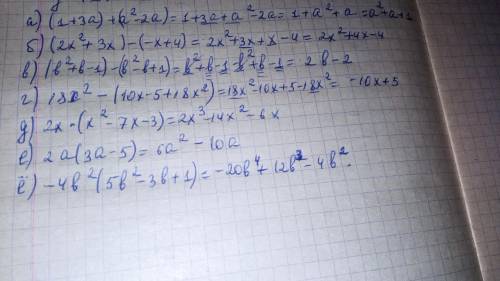 а) (1+3a)+(a²-2a)=1+3a+a²-2a=1+a²+a=a²+a+1
б) (2x²+3x)-(-x+4)=2x²+3x+x-4=2x²+4x-4
в) (b²+b-1)-(b²-b+1)=b²+b-1-b²+b-1=2b-2
г) 18x²-(10x-5+18x²)=18x²-10x+5-18x²=-10x+5
д) 2x·(x²-7x-3)=2x³-14x²-6x
е) 2a(3a-5)=6a²-10a
ё) -4b²(5b²-3b+1)=-20b⁴+12b³-4b².